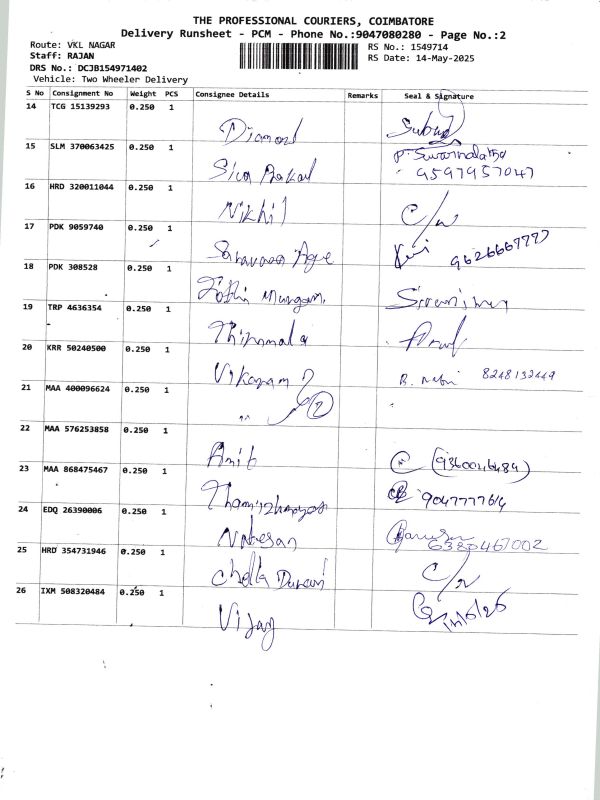 THE PROFESSIONAL COURIERS, COIMBATORE
Delivery Runsheet - PCM - Phone No.:9047080280 - Page No.:2
Route: VKL NAGAR
RS No.: 1549714
Staff: RAJAN
RS Date: 14-May-2025
DRS No.: DCJB154971402
Vehicle: Two Wheeler Delivery
S No Consignment No Weight PCS Consignee Details Remarks Seal & Signature
14 TCG 15139293 0.250 1 Diamond
15 SLM 370063425 0.250 1 P. Swarnalatha
9597957047
16 HRD 320011044 0.250 1 Nikhil C/n
17 PDK 9059740 0.250 1
18 PDK 308528 0.250 1
19 TRP 4636354 0.250 1 Thirumala
20 KRR 50240500 0.250 1 8248132449
21 MAA 400096624 0.250 1 2
22 MAA 576253858 0.250 1 Amit
23 MAA 868475467 0.250 1
24 EDQ 26390006 0.250 1 Natesan 6380467002
25 HRD 354731946 0.250 1 Chella Durai C/n
26 IXM 508320484 0.250 1 Vijay